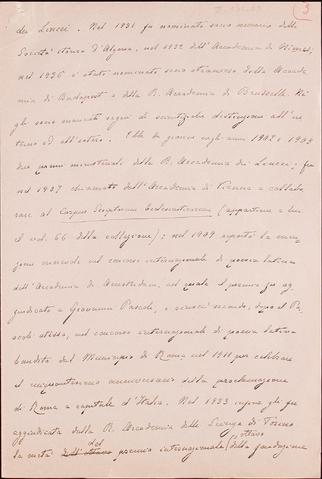 3
dei Lincei. Nel 1931 fu nominato socio onorario della
Società storica d'Algeria, nel 1932 dell'Accademia di
nel 1936 è stato nominato socio straniero della Accade-
mia di Budapest e della R. Accademia di Bruxelles. Né
gli sono mancati segni di scientifiche distinzioni all'in-
terno ed all'estero. Ebbe da giovane negli anni 1902 e 1903
due premi ministeriali della R. Accademia dei Lincei; fu
nel 1907 chiamato dall'Accademia di Vienna a collabo-
rare al Corpus Scriptorum Ecclesiasticorum (appartiene a lui
il vol. 66 della collezione); nel 1909 riportò la men-
zione onorevole nel concorso internazionale di poesia latina
dell'Accademia di Amsterdam, nel quale il premio fu ag-
giudicato a Giovanni Pascoli, e riuscì secondo, dopo il Pa-
scoli stesso, nel concorso internazionale di poesia latina
bandito dal Municipio di Roma nel 1911 per celebrare
il cinquantesimo anniversario della proclamazione
di Roma a capitale d'Italia. Nel 1933 infine gli fu
aggiudicata dalla R. Accademia delle Scienze di Torino
la metà del premio internazionale della fondazione